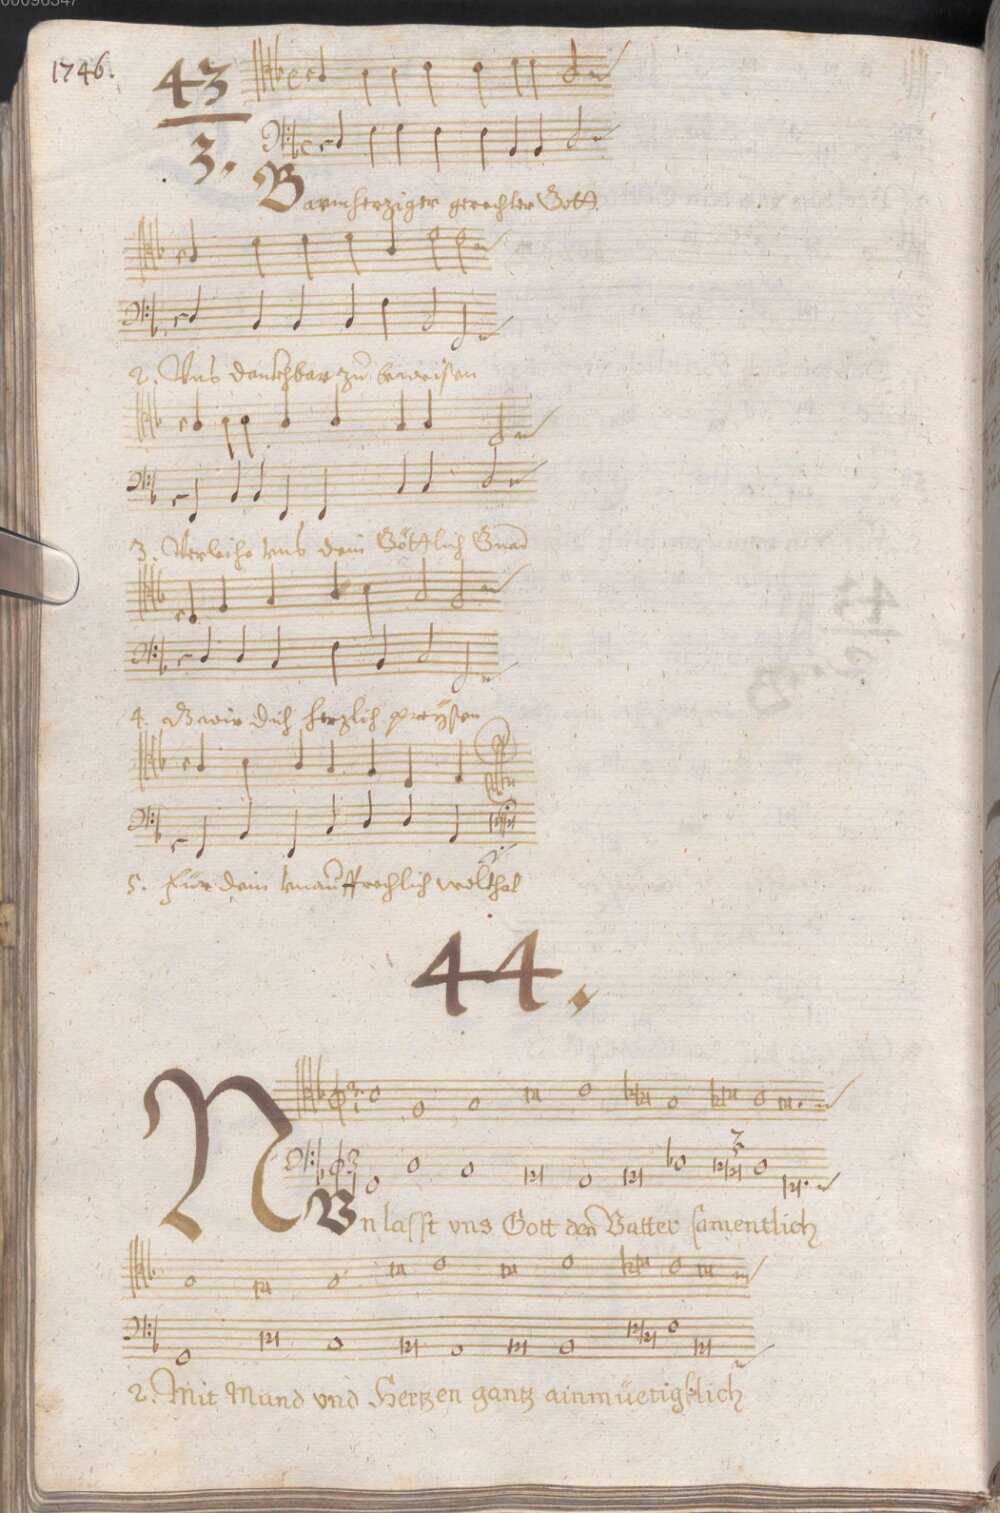 00096347
1746.
43
3.
Barmhertziger gerechter Gott.
2. Uns danckhbar zu beweisen
3. Verleihe uns dein Göttlich Gnad
4. dz wir dich hertzlich preÿsen
5. Für dein
44.
NVn lasst vns Gott den Vatter samentlich
2. Mit Mund vnd Hertzen gantz ainmüetigklich